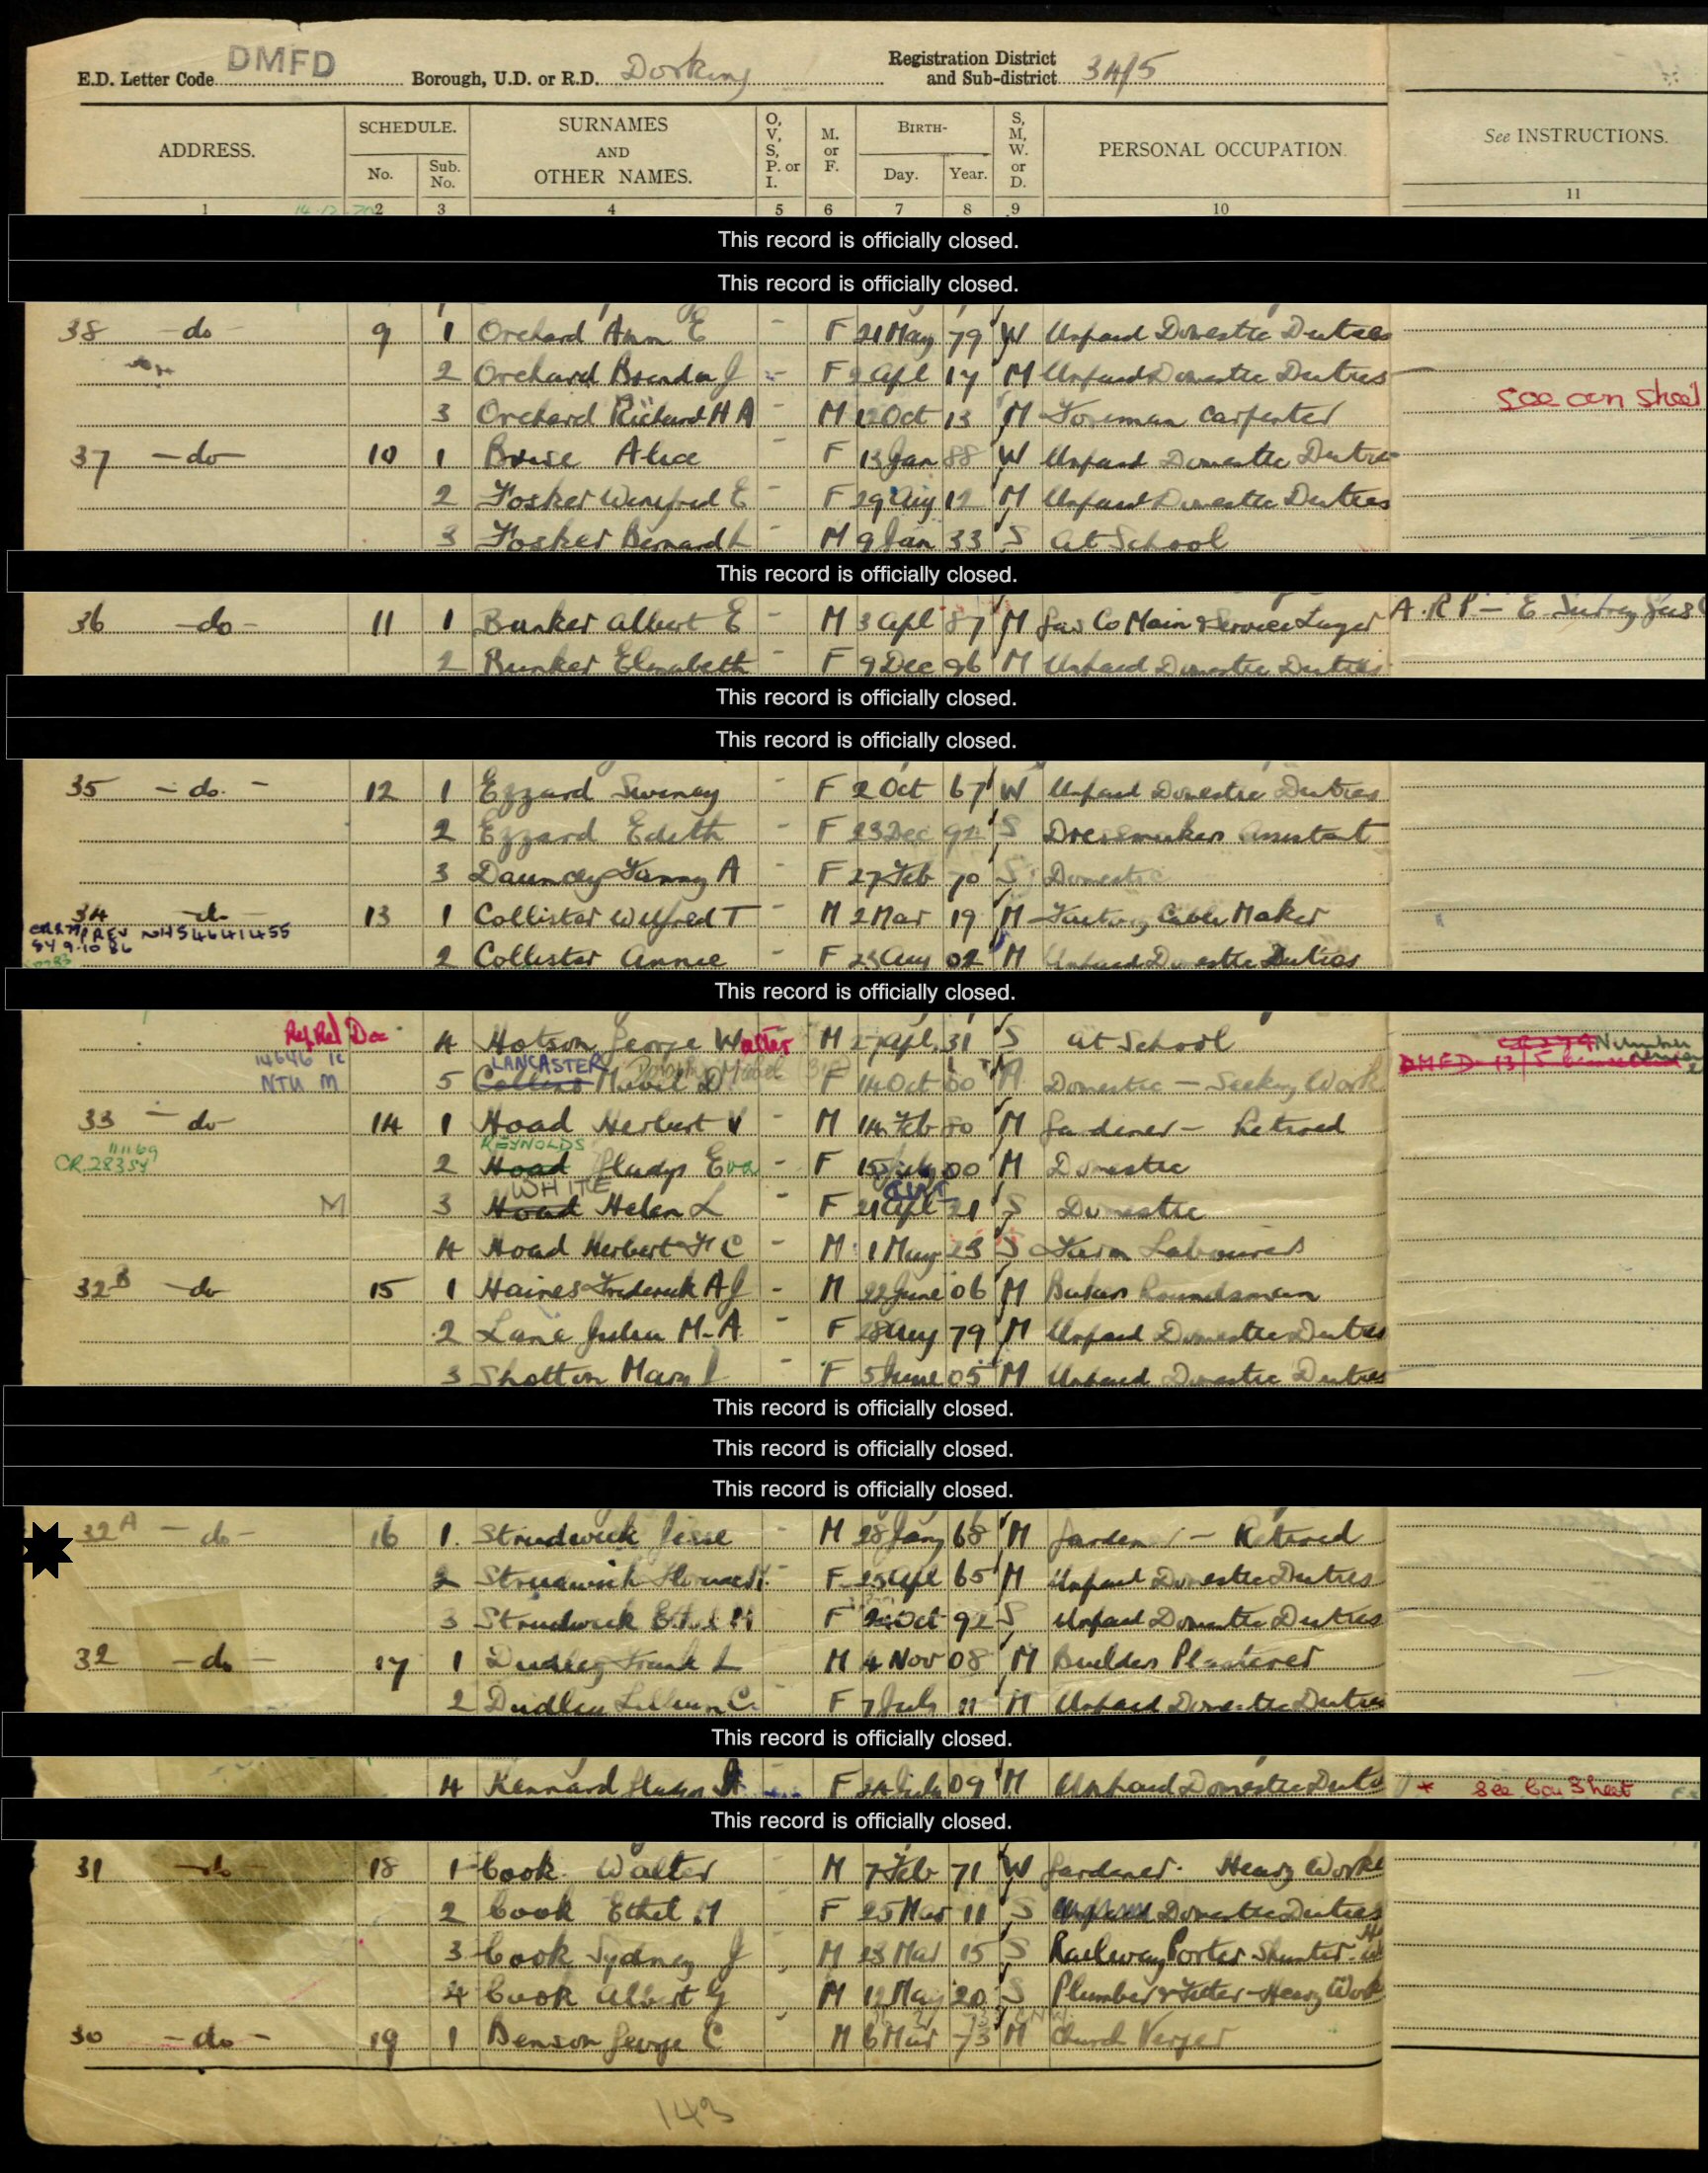 E.D. Letter Code DMFD Borough, U.D. or R.D. Dorking Registration District and Sub-district 34/5
ADDRESS. SCHEDULE. No. Sub. No. SURNAMES AND OTHER NAMES. O, V, S, P. or I. M. or F. BIRTH- Day. Year. S, M, W. or D. PERSONAL OCCUPATION. See INSTRUCTIONS.
1 2 3 4 5 6 7 8 9 10 11
This record is officially closed.
This record is officially closed.
38 - do - 9 1 Orchard Ann E - F 21 May 79 W Unpaid Domestic Duties
2 Orchard Brenda J - F 2 Apl 17 M Unpaid Domestic Duties
3 Orchard Richard H A - M 12 Oct 13 M Foreman Carpenter see con sheet
37 - do - 10 1 Alice - F 13 Jan 88 W Unpaid Domestic Duties
2 Fosker Winifred E - F 29 Aug 12 M Unpaid Domestic Duties
3 Fosker Bernard L - M 9 Jan 33 S At School
This record is officially closed.
36 - do - 11 1 Bunker Albert E - M 3 Apl 87 M Gas Co Main & Service Layer A.R.P - E. Surrey Gas
2 Bunker Elizabeth - F 9 Dec 96 M Unpaid Domestic Duties
This record is officially closed.
This record is officially closed.
35 - do - 12 1 Ezzard - F 2 Oct 67 W Unpaid Domestic Duties
2 Ezzard Edith - F 23 Dec S Dressmakers Assistant
3 Dauncey Fanny A - F 27 Feb 70 S Domestic
34 - do - 13 1 Collister Wilfred T - M 2 Mar 19 M Factory Cable Maker
2 Collister Annie - F 23 Aug 02 M Unpaid Domestic Duties
This record is officially closed.
4 Hotson George Walter M 27 Apl 31 S At School
LANCASTER
NTU M 5 Mabel D F 14 Oct 00 M Domestic - Seeking Work
33 - do - 14 1 Hoad Herbert V M 14 Feb 80 M Gardener - Retired
REYNOLDS
CR 28354 2 Hoad Gladys Eva - F 15 July 00 M Domestic
WHITE
M 3 Hoad Helen L - F 21 Apl 21 S Domestic
4 Hoad Herbert F C - M 1 May 23 S Farm Labourer
32B - do 15 1 Haines Frederick A J - M 22 June 06 M Bakers Roundsman
2 Lane Julia M.A. - F 28 Aug 79 M Unpaid Domestic Duties
3 Shotton Mary - F 5 June 05 M Unpaid Domestic Duties
This record is officially closed.
This record is officially closed.
This record is officially closed.
32A - do - 16 1. Strudwick Jesse - M 28 Jany 68 M Gardener - Retired
2 Strudwick - F 25 Apl 65 M Unpaid Domestic Duties
3 Strudwick Ethel M - F Oct 92 S Unpaid Domestic Duties
32 - do - 17 1 Dudley Frank L M 4 Nov 08 M Builders Plasterer
2 Dudley Lillian C. - F 7 July 11 M Unpaid Domestic Duties
This record is officially closed.
4 Kennard Gladys F 24 July 09 M Unpaid Domestic Duties * see Con Sheet
This record is officially closed.
31 - do - 18 1 Cook Walter M 7 Feb 71 W Gardener. Heavy Worker
2 Cook Ethel M F 25 Mar 11 S Unpaid Domestic Duties
3 Cook Sydney J M 23 Mar 15 S Railway Porter Shunter
4 Cook Albert G M 12 May 20 S Plumber & Fitter - Heavy Work
30 - do - 19 1 Benson George C M 6 Mar 73 M Church Verger
143